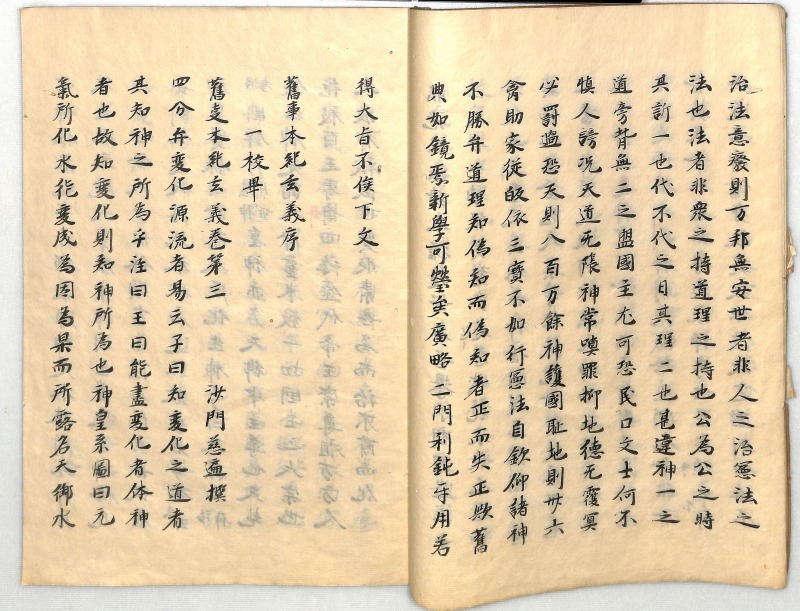 治法意廢則万邦無安世者非人之治憲法之
法也法者非衆之持道理之持也公為公之時
其訴一也代不代之日其理二也甚違神一之
道旁背無二之盟國主尤可恐民口文士何不
慎人謗况天道无隈神常嗔罪抑地德无覆冥
必罸過恐天則八百万餘神護國耻地則卅六
禽助家従皈依三寳不如行憲法自欽仰諸神
不勝弁道理知偽知而偽知者正而失正歟舊
典如鏡焉新學可瑩矣廣略二門利鈍乎用若
得大旨不俟下文
舊事本紀玄義序
一校畢
舊事本紀玄義巻第三 沙門慈遍撰
四分弁變化源流者易云子曰知變化之道者
其知神之所為乎注曰王曰能盡變化者体神
者也故知變化則知神所為也神皇系圖曰元
氣所化水徳變成為因為果而所露名天御水